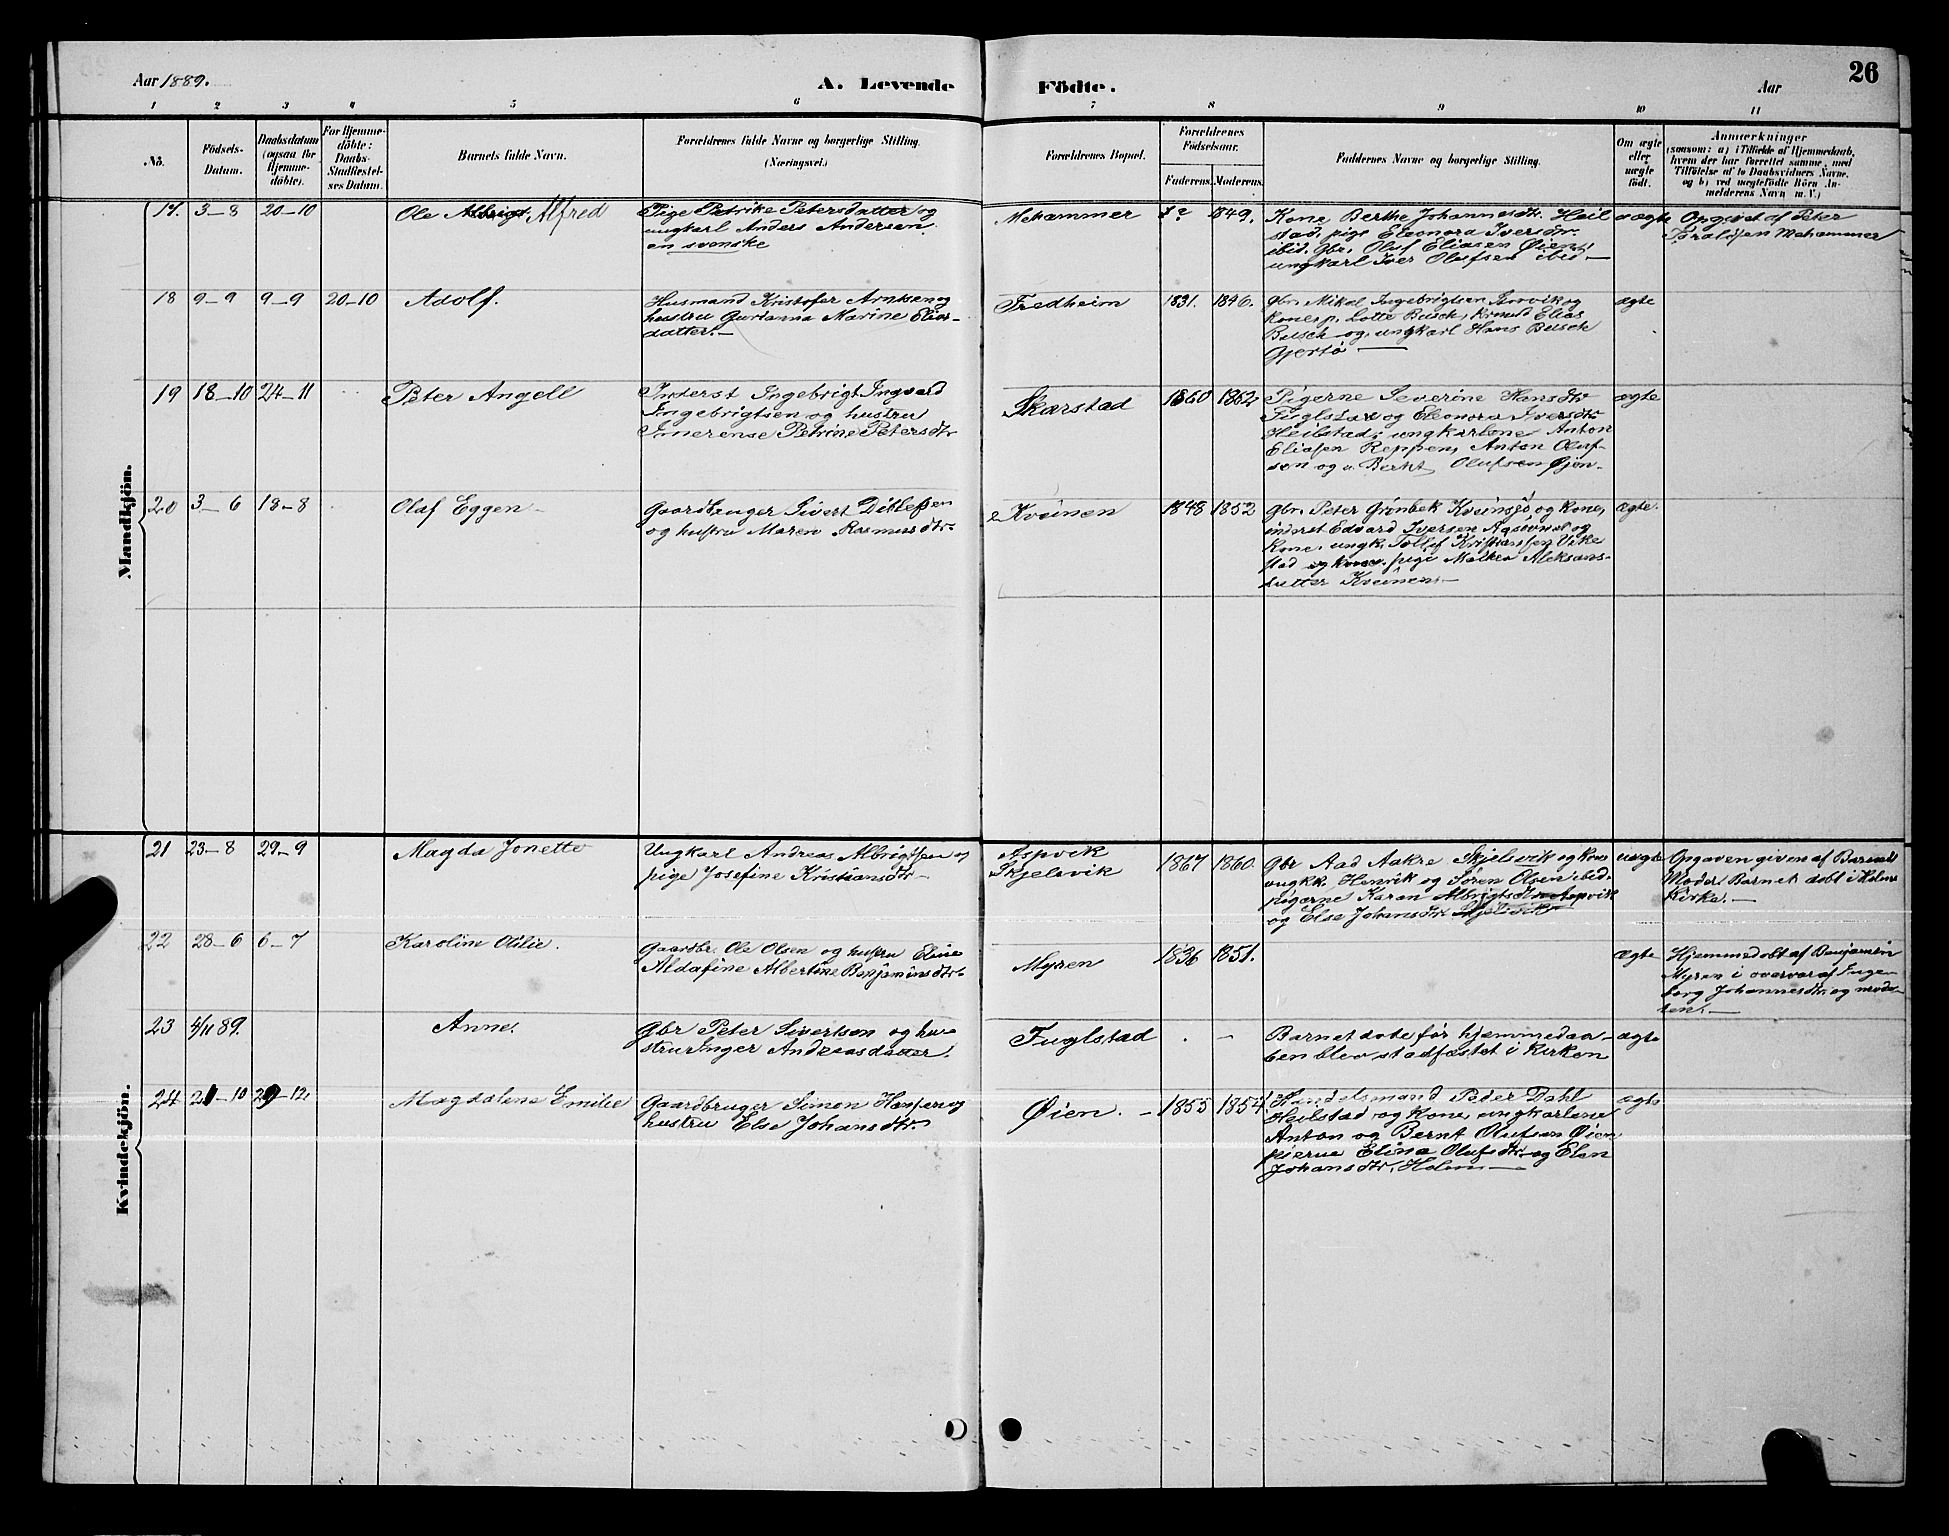 Aar 1889.
A. Levende
Födte.
Aar
26
1 2 3 4 5 6 7 8 9 10 11
No.
Födsels-
Datum.
Daabsdatum
(ogsaa for
Hjemme-
döbte).
For Hjemme-
döbte:
Daabs-
Stadfæstel-
ses Datum.
Barnets fulde Navn.
Forældrenes fulde Navne og borgerlige Stilling.
(Næringsvei.)
Forældrenes Bopæl.
Forældrenes
Födselsaar.
Faderens. Moderens.
Faddernes Navne og borgerlige Stilling.
Om ægte
eller
uægte
födt.
Anmærkninger
(saasom: a) i Tilfælde af Hjemmedaab,
hvem der har forrettet samme, med
Tilföielse af to Daabsvidners Navne,
og b) ved uægtefödte Börn An-
melderens Navn m. V.)
Mandkjön.
17. 3-8 20-10
Ole Albrigt Alfred
Pige Petrike Petersdatter og
ungkarl Anders Andersen
en svenske
Mehammer
? 1849.
Kone Berthe Johannesdtr. Heil
stad, pige Eleonora Iversdtr.
ibid. Gbr. Oluf Eliasen Øien,
ungkarl Iver Olufsen ibid.
uægte
Opgivet af Peter
Mehammer
18 9-9 9-9 20-10
Adolf.
Husmand Kristofer Arntsen og
hustru Gurianna Marine Elias-
datter.
Fredheim
1831. 1846.
Gbr. Mikal Ingebrigtsen og
Lotte Busch, Elias
Busch og ungkarl Hans Busch
Gjertø
ægte
19 18-10 24-11
Peter Angell
Inderst Ingebrigt Ingvard
Ingebrigtsen og hustru
Imerense Petrine Petersdtr
Skarstad
1860 1862
Pigerne Severine Hansdtr
Fuglstad og Eleonora Iversdtr.
Heilstad, ungkarlene Anton
Eliasen Reppen, Anton Oluf-
sen og Bernt Olufsen Øjen.
ægte
20 3-6 18-8
Olaf Eggen
Gaardbruger Sivert Ditlefsen
og hustru Maren Rasmusdtr.
Kveinen
1848 1852
Gbr. Peter Grønbek Kveinsjø og kone,
inderst Edvard Iversen og
Kone, ungk. Kristiansen Vike
stad pige Aleksans-
datter Kveinen.
ægte.
Kvindekjön.
21 23-8 29-9
Magda Jonette
Ungkarl Andreas Albrigtsen og
pige Josefine Kristiansdtr
Aspvik
Skjelsvik
1867 1860.
Gbr Aad Aakre Skjelsvik og kone
ungkk. Henrik og Søren Olsen ibid.
pigerne Karen Albrigtsdtr Aspvik
og Else Johansdtr. Skjelsvik
uægte
Opgaven given af Barnets
Moder. Barnet døbt i Holms
Kirke.
22 28-6 6-7
Karoline Otilie.
Gaardbr. Ole Olsen og hustru Eline
Aldafine Albertine Benjaminsdtr
Myren
1836 1851.
ægte
Hjemmedøbt af Benjamin
Myren i overvær af Inge-
borg Johannesdtr. og mode-
ren.
23 4/11 89.
Anne.
Gbr Peter Sivertsen og hu-
stru Inger Andreasdatter.
Fuglstad
. -
Barnet døde før hjemmedaa-
ben blev stadfæstet i kirken
ægte
24 21-10 29-12.
Magdalene Emilie
Gaardbruger Simon Hansen og
hustru Else Johansdtr.
Øien.
1855 1854.
Handelsmand Peder Dahl
Heilstad og Kone, ungkarlene
Anton og Bernt Olufsen Øien
pierne Elina Olufsdtr. og Elen
Johansdtr. Holm
ægte